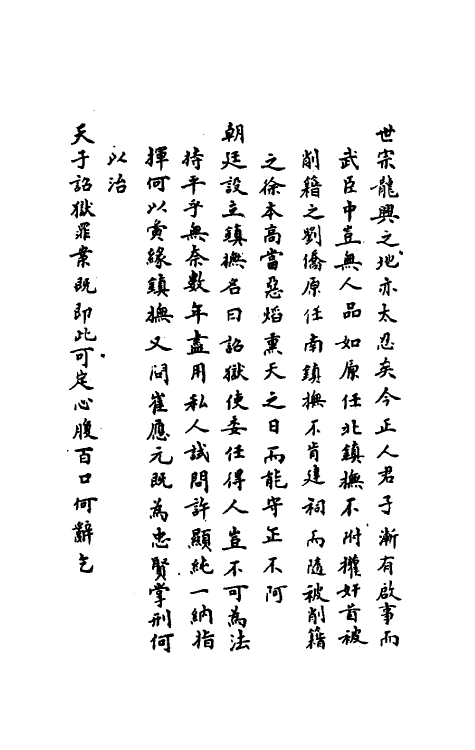 世宗龍興之地亦太忍矣今正人君子漸有啟事而
武臣中豈無人品如原任北鎮撫不附權奸首被
削籍之劉僑原任南鎮撫不肯建祠而隨被削籍
之徐本高當惡焰熏天之日而能守正不阿
朝廷設立鎮撫名曰詔獄使委任得人豈不可為法
持平乎無奈數年盡用私人試問許顯純一納指
揮何以夤緣鎮撫又問崔應元既為忠賢掌刑何
以治
天子詔獄罪案既即此可定心腹百口何辭乞